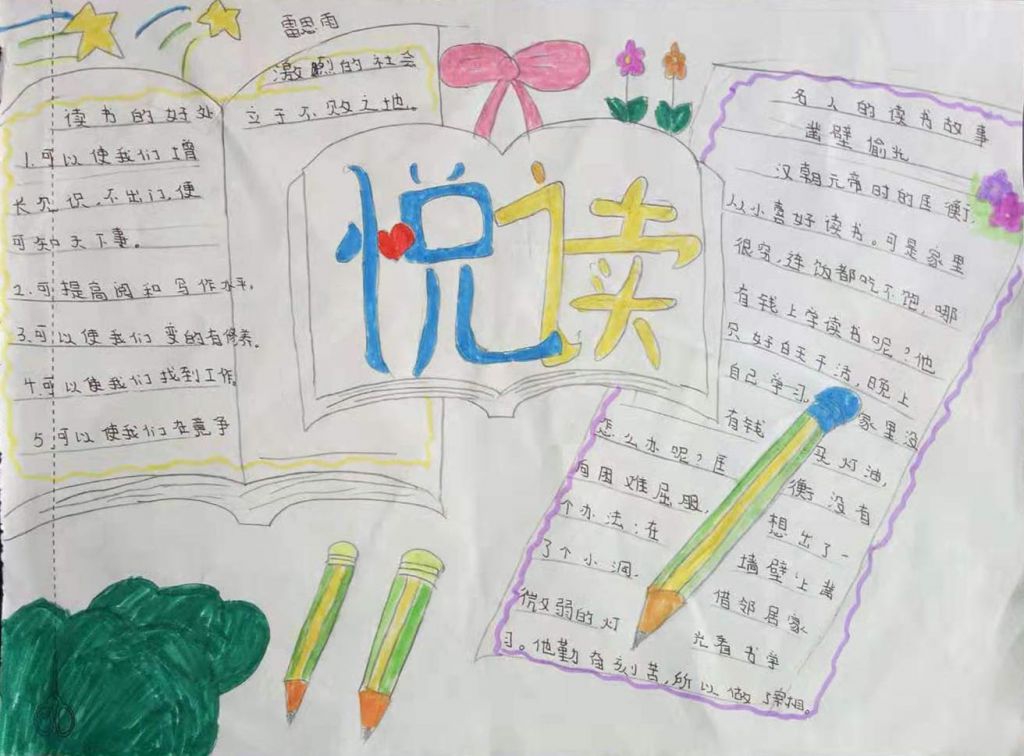 雷思雨
读书的好处
1.可以使我们增
长见识，不出门，便
可知天下事。
2.可提高阅和写作水平。
3.可以使我们变的有修养。
4.可以使我们找到工作
5.可以使我们在竞争
激烈的社会
立于不败之地。
悦读
名人的读书故事
凿壁偷光
汉朝元帝时的匡衡，
从小喜好读书。可是家里
很穷，连饭都吃不饱，哪
有钱上学读书呢，他
只好白天干活，晚上
自己学习 家里没
有钱 买灯油，
怎么办呢，匡 衡没有
自困难屈服， 想出了一
个办法：在 墙壁上凿
了个小洞. 借邻居家
微弱的灯 光看书学
习。他勤奋刻苦，所以做 相。